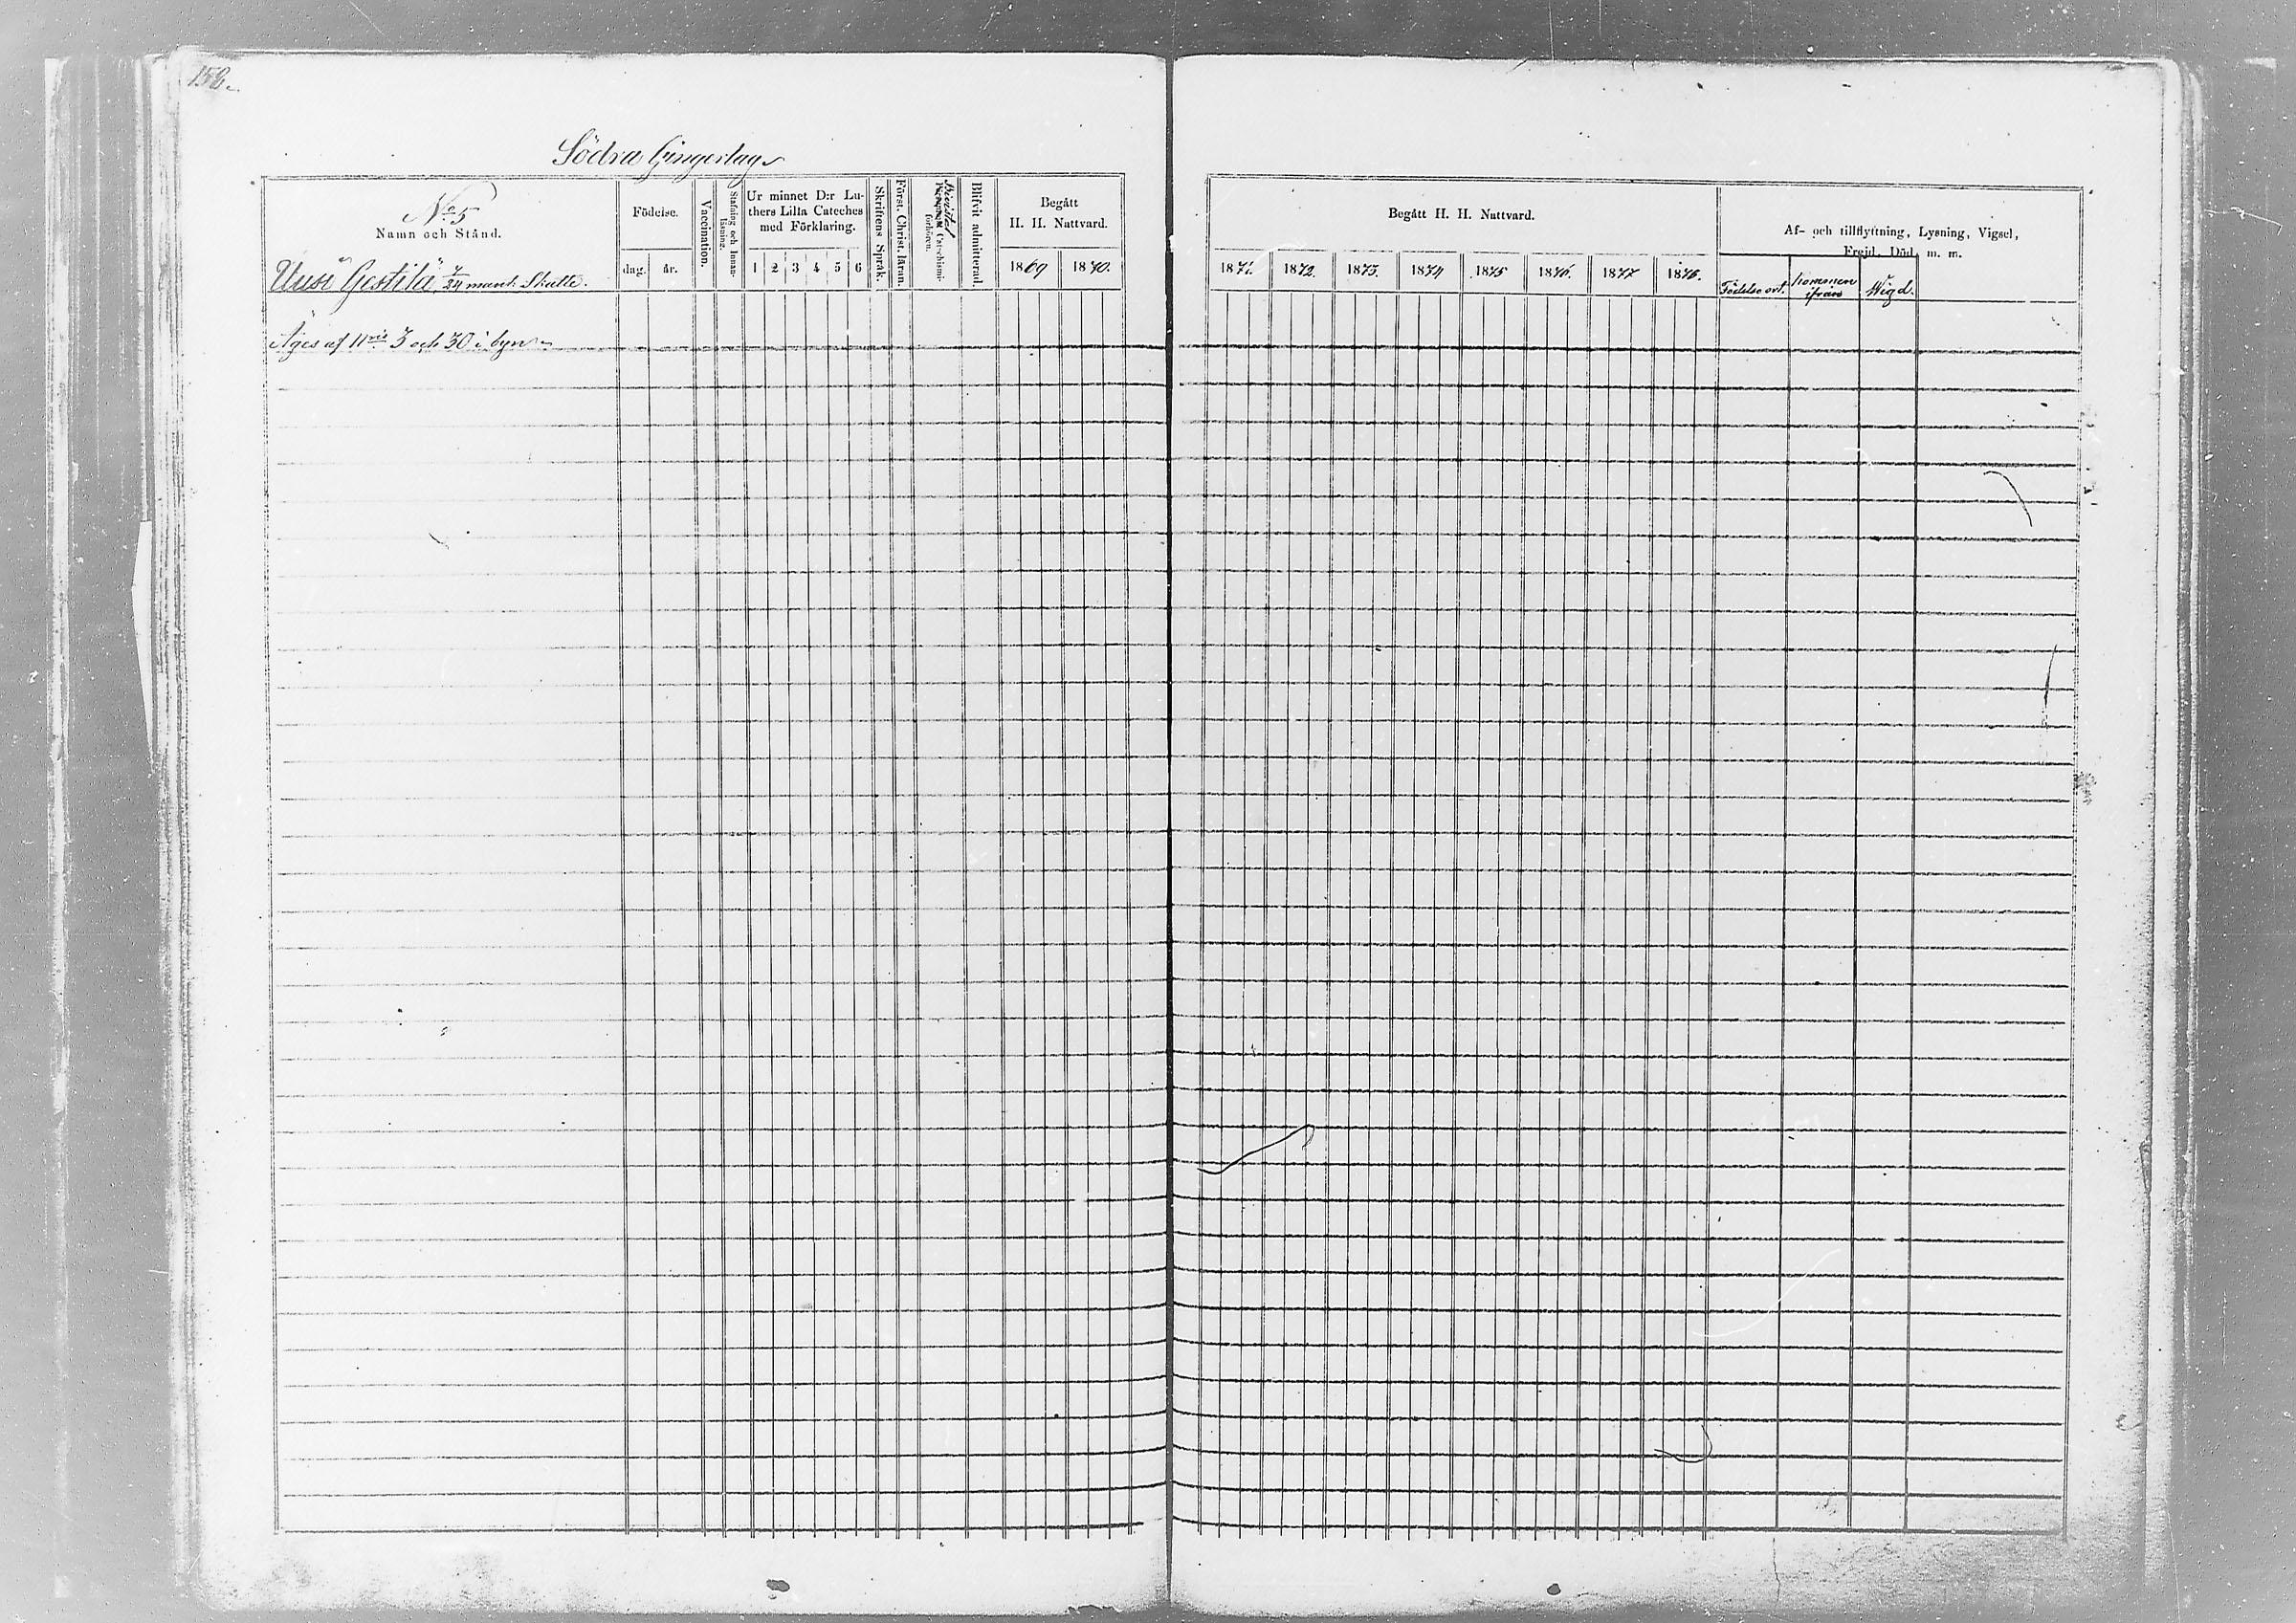 158.
Södra Gingerlag
No 5
Namn och Stånd.
Uusi Gestilä 7/24 mant. Skatte.
Äges af N:ris 3 och 30 i byn
Födelse.
dag. år.
Vaccination.
Stafning och Innanläsning.
Ur minnet D:r Lu-
thers Lilla Cateches
med Förklaring.
1 2 3 4 5 6
Skriftens Språk.
Först. Christ. läran.
Bivistad
Catechismi-
förhören.
Blifvit admitterad.
Begått
H. H. Nattvard.
1869 1870.
Begått H. H. Nattvard.
1871. 1872. 1873. 1874 1875 1876. 1877 1878.
Af- och tillflyttning, Lysning, Vigsel,
Frejd, Död, m. m.
Födelse ort. Kommen ifrån Wigd.